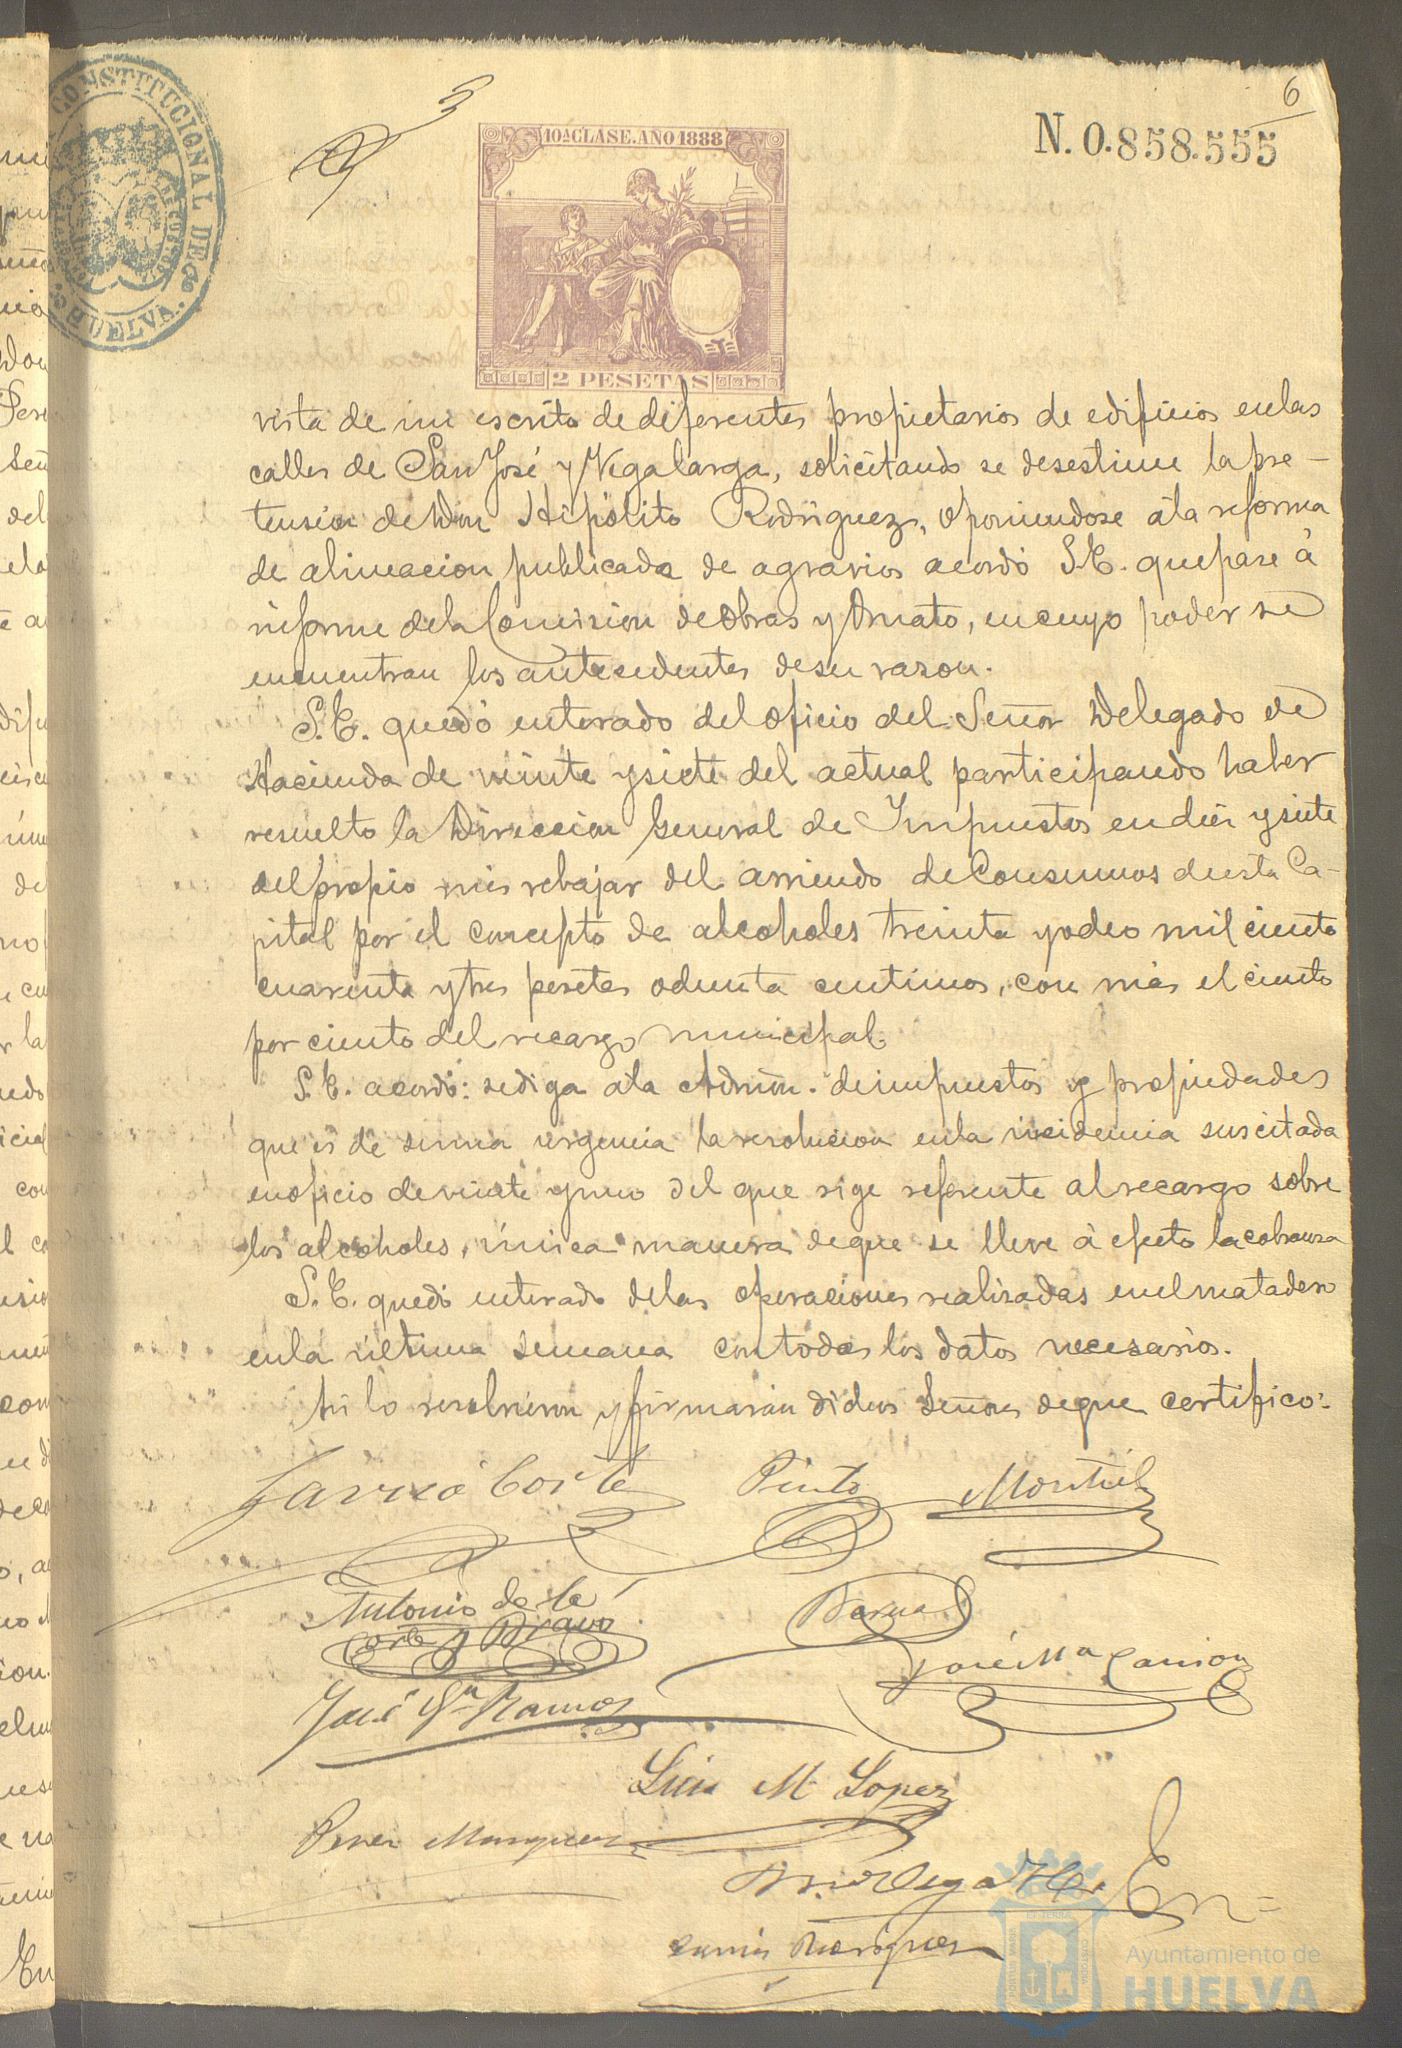 6
N. 0.858.555
CONSTITUCIONAL DE
HUELVA.
10ª CLASE. AÑO 1888
2 PESETAS
vista de un escrito de diferentes propietarios de edificios en las
calles de San José y Vegalarga, solicitando se desestime la pre-
tension de Don Hipólito Rodriguez, oponiendose á la reforma
de alineacion publicada de agravios acordó S.E. que pase á
informe de la Comision de Obras y Ornato, en cuyo poder se
encuentran los antecedentes de su razon.
S.E. quedó enterado del oficio del Señor Delegado de
Hacienda de veinte y siete del actual participando haber
resuelto la Direccion General de Impuestos en diez y siete
del propio mes rebajar del arriendo de Consumos de esta Ca-
pital por el concepto de alcoholes treinta y ocho mil ciento
cuarenta y tres pesetas ochenta centimos, con más el ciento
por ciento del recargo municipal.
S.E. acordó: se diga a la Admon. de impuestos y propiedades
que es de suma urgencia la resolucion en la incidencia suscitada
en oficio de veinte y uno del que rige referente al recargo sobre
los alcoholes, única manera de que se lleve á efecto la cobranza
S.E. quedó enterado de las operaciones realizadas en el matadero
en la última semana con todos los datos necesarios.
Asi lo resolvieron y firmarán dichos Señores de que certifico:
Garcia Corte Pinto Montiel
Antonio de la
Corte y Bravo
Bernal
José Mª Carrion
José Gª Ramos
Luis M. Lopez
Perez Marquez
En=
Rodriguez
Ayuntamiento de
HUELVA